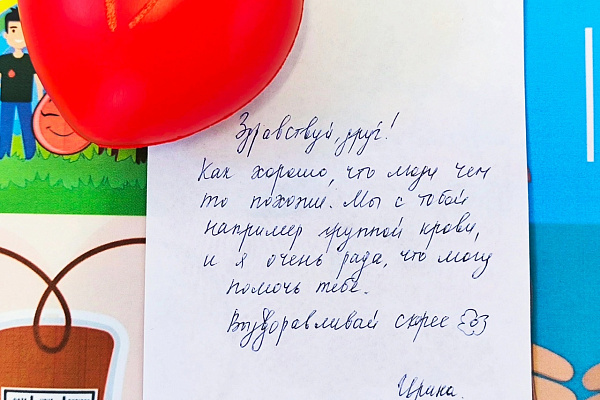 Здравствуй, друг!
Как хорошо, что люди чем
то похожи. Мы с тобой
например группой крови,
и я очень рада, что могу
помочь тебе.
Выздоравливай скрее
Ирина.